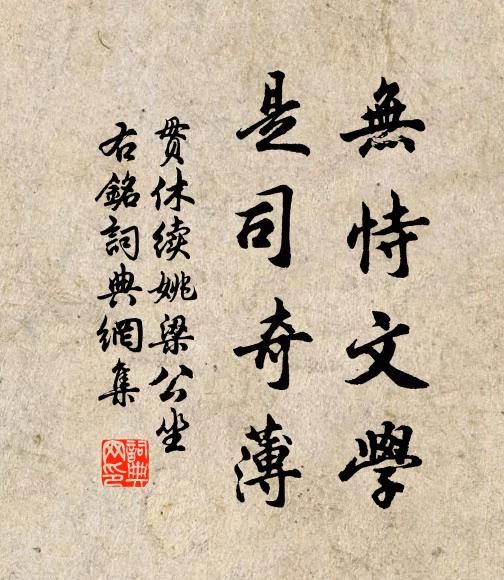 無恃文學
是司奇薄
贯休续姚梁公坐
右銘詞典網集
詞典
网印